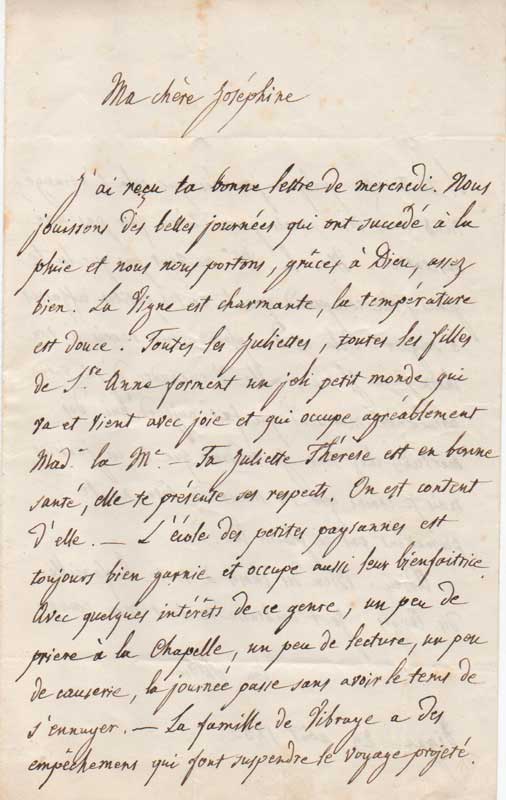 Ma chère Joséphine
J'ai reçu ta bonne lettre de mercredi. Nous
jouissons des belles journées qui ont succédé à la
pluie et nous nous portons, grâces à Dieu, assez
bien. La Vigne est charmante, la température
est douce. Toutes les Juliettes, toutes les filles
de S.te Anne forment un joli petit monde qui
va et vient avec joie et qui occupe agréablement
Mad.e la M.e — Ta Juliette Thérèse est en bonne
santé, elle te présente ses respects. On est content
d'elle. — L'école des petites paysannes est
toujours bien garnie et occupe aussi leur bienfaitrice.
Avec quelques intérêts de ce genre, un peu de
priere à la Chapelle, un peu de lecture, un peu
de causerie, la journée passe sans avoir le tems de
s'ennuyer. — La famille de Vibraye a des
empêchemens qui font suspendre le voyage projeté.